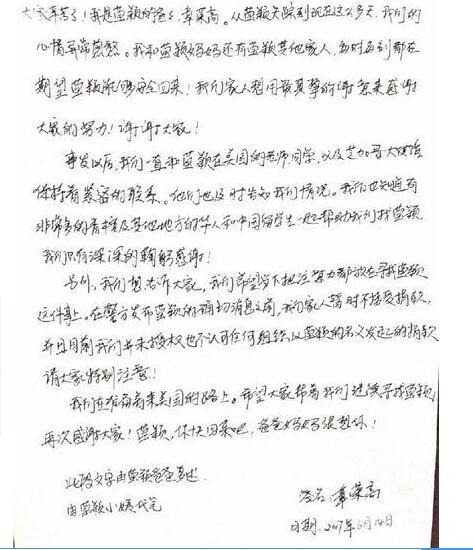 大家辛苦了!我是蓝颖的爸爸,章荣高。从蓝颖失踪到现在这么多天,我们的
心情非常煎熬。我和蓝颖妈妈还有蓝颖其他家人,每时每刻都在
期望蓝颖能够安全回来!我们家人想用最真挚的谢意来感谢
大家的努力!谢谢大家!
事发以后,我们一直和蓝颖在美国的老师,同学,以及芝加哥大使馆
保持着紧密的联系。他们也及时告知我们情况。我们也知道有
非常多的香槟及其他地方的华人和中国留学生一起帮助我们找蓝颖,
我们只有深深的鞠躬感谢!
另外,我们想告诉大家,我们希望当下把注意力都放在寻找蓝颖
这件事上。在警方发布蓝颖的确切消息之前,我们家人暂时不接受捐款,
并且目前我们并未授权也不认可任何组织以蓝颖的名义发起的捐款
请大家特别注意!
我们在准备着来美国的路上。希望大家帮着我们继续寻找蓝颖!
再次感谢大家!蓝颖,你快回来吧,爸爸妈妈很想你!
此段文字由蓝颖爸爸口述
由蓝颖小姨代写
签名:章荣高
日期:2017年6月14日